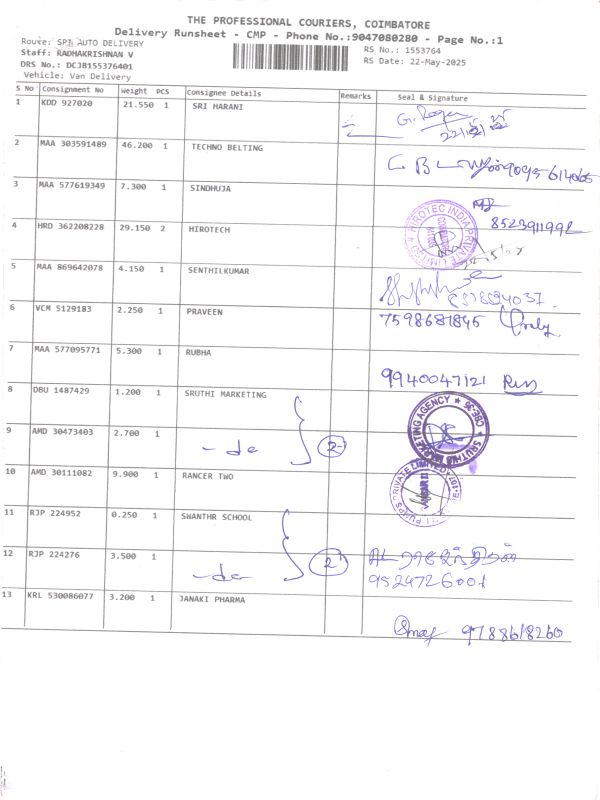 THE PROFESSIONAL COURIERS, COIMBATORE
Delivery Runsheet - CMP - Phone No.:9047080280 - Page No.:1
Route: SPL AUTO DELIVERY
Staff: RADHAKRISHNAN V
RS No.: 1553764
DRS No.: DCJB155376401
RS Date: 22-May-2025
Vehicle: Van Delivery
S No Consignment No Weight PCS Consignee Details Remarks Seal & Signature
1 KDD 927020 21.550 1 SRI HARANI
2 MAA 303591489 46.200 1 TECHNO BELTING
3 MAA 577619349 7.300 1 SINDHUJA
8523911992
4 HRD 362208228 29.150 2 HIROTECH
HIROTEC INDIA PRIVATE LIMITED
5 MAA 869642078 4.150 1 SENTHILKUMAR
6 VCM 5129183 2.250 1 PRAVEEN
7598681845
7 MAA 577095771 5.300 1 RUBHA
9940047121
8 DBU 1487429 1.200 1 SRUTHI MARKETING
SRUTHI MARKETING AGENCY CBE-35
9 AMD 30473403 2.700 1 -do 2
10 AMD 30111082 9.900 1 RANCER TWO
PUMPS PRIVATE LIMITED
11 RJP 224952 0.250 1 SWANTHR SCHOOL
12 RJP 224276 3.500 1 -do 2
9524726001
13 KRL 530086077 3.200 1 JANAKI PHARMA
9788618260